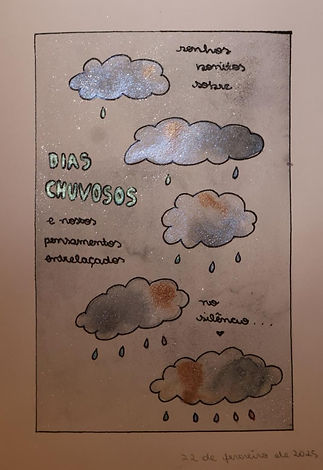 sonhos
bonitos
sobre
DIAS
CHUVOSOS
e nossos
pensamentos
entrelaçados
no
silêncio...
22 de fevereiro de 2025